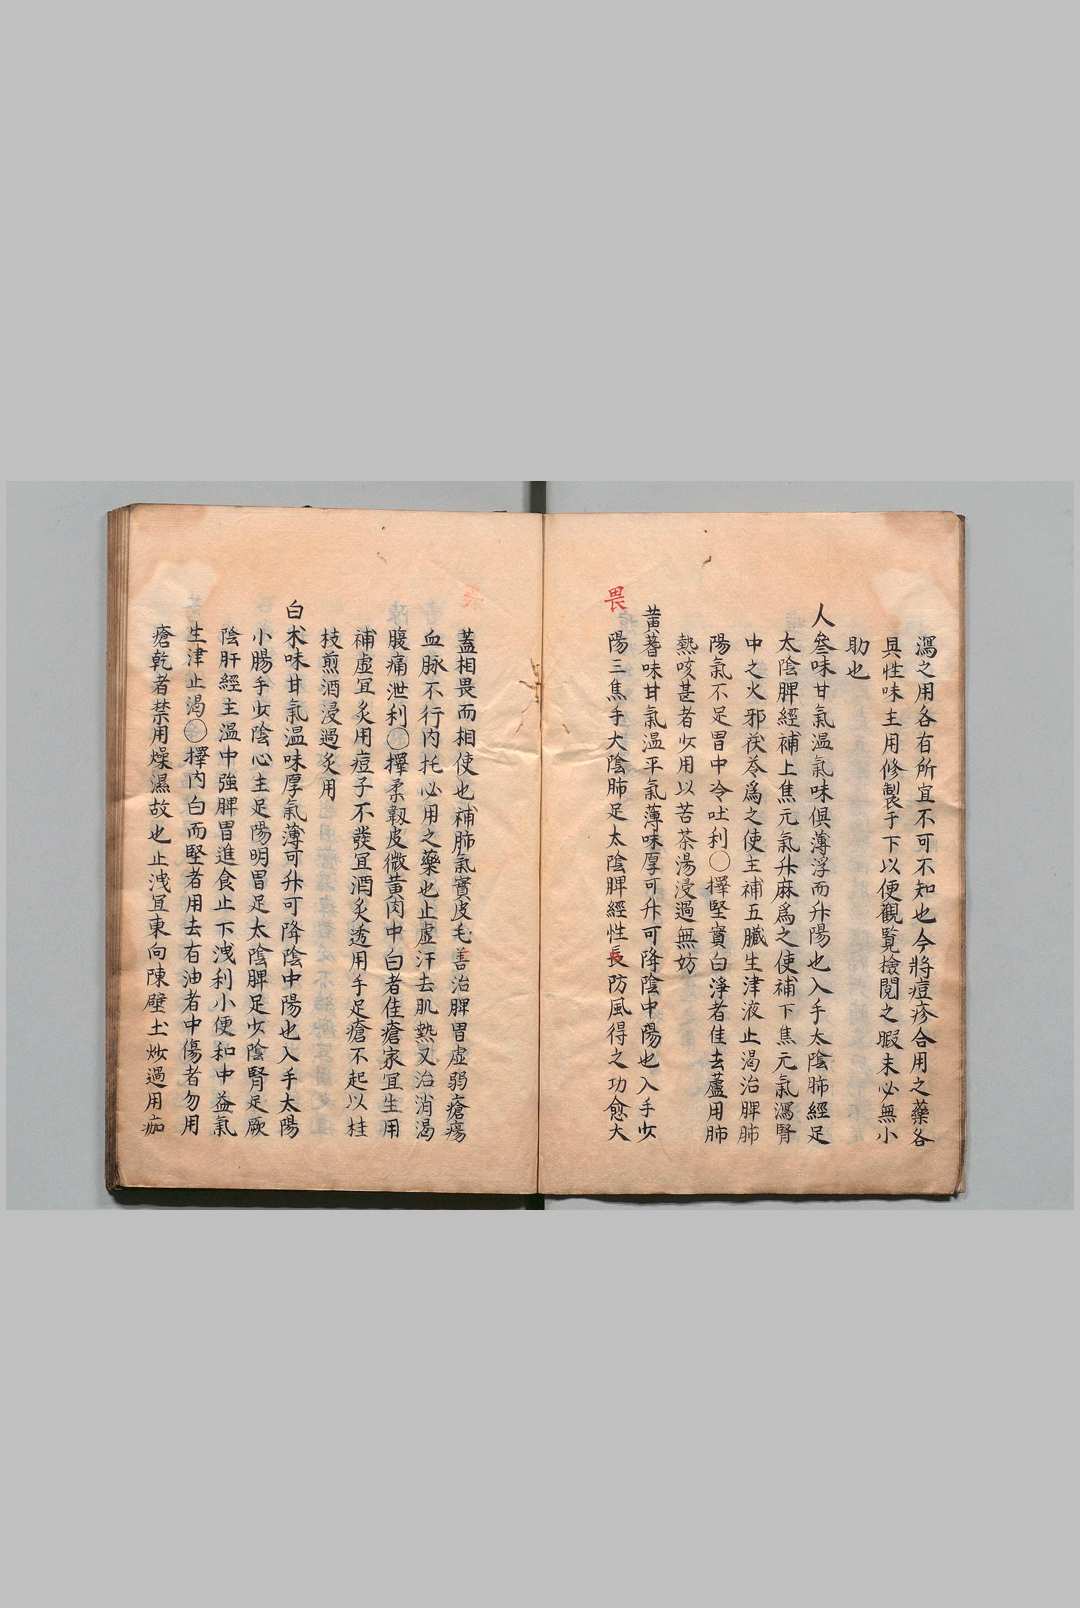 瀉之用各有所宜不可不知也今將痘疹合用之藥各
具性味主用修製于下以便觀覽撿閱之暇未必無小
助也
人參味甘氣温氣味俱薄浮而升陽也入手太陰肺經足
太陰脾經補上焦元氣升麻爲之使補下焦元氣瀉腎
中之火邪茯苓爲之使主補五臟生津液止渴治脾肺
陽氣不足胃中冷吐利〇擇堅實白淨者佳去蘆用肺
熱咳甚者少用以苦茶湯浸過無妨
黄蓍味甘氣温平氣薄味厚可升可降陰中陽也入手少
陽三焦手大陰肺足太陰脾經性畏防風得之功愈大
畏
蓋相畏而相使也補肺氣實皮毛善治脾胃虛弱瘡瘍
血脉不行内托必用之藥也止虛汗去肌熱又治消渴
腹痛泄利〇擇柔韌皮微黄肉中白者佳瘡家宜生用
補虛宜炙用痘子不發宜酒炙透用手足瘡不起以桂
枝煎酒浸過炙用
白术味甘氣温味厚氣薄可升可降陰中陽也入手太陽
小腸手少陰心主足陽明胃足太陰脾足少陰腎足厥
陰肝經主温中強脾胃進食止下洩利小便和中益氣
生津止渴〇擇内白而堅者用去有油者中傷者勿用
瘡乾者禁用燥濕故也止洩宜東向陳壁土炒過用痂